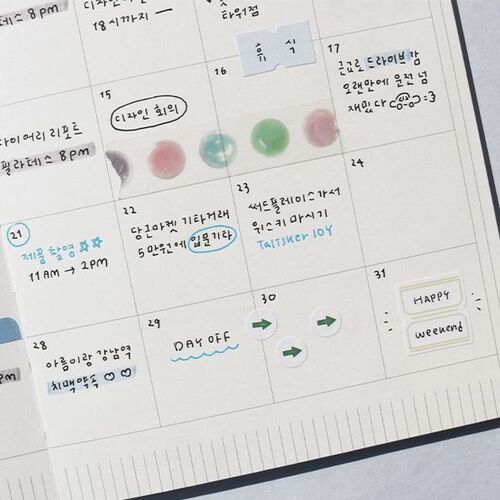 테스 8pm
18시까지 —
타워점
휴 식
15
디자인 회의
16
17
근교로 드라이브 감
오랜만에 운전 넘
재밌다 :3
다이어리 리포트
필라테스 8pm
21
제품 촬영 ☆☆
11AM → 2PM
22
당근마켓 기타거래
5만원에 입문기타
23
써드플레이스가서
위스키 마시기
Talisker 10Y
24
28
아름이랑 강남역
치맥약속 ♡♡
29
DAY OFF
30
31
HAPPY
weekend
pm